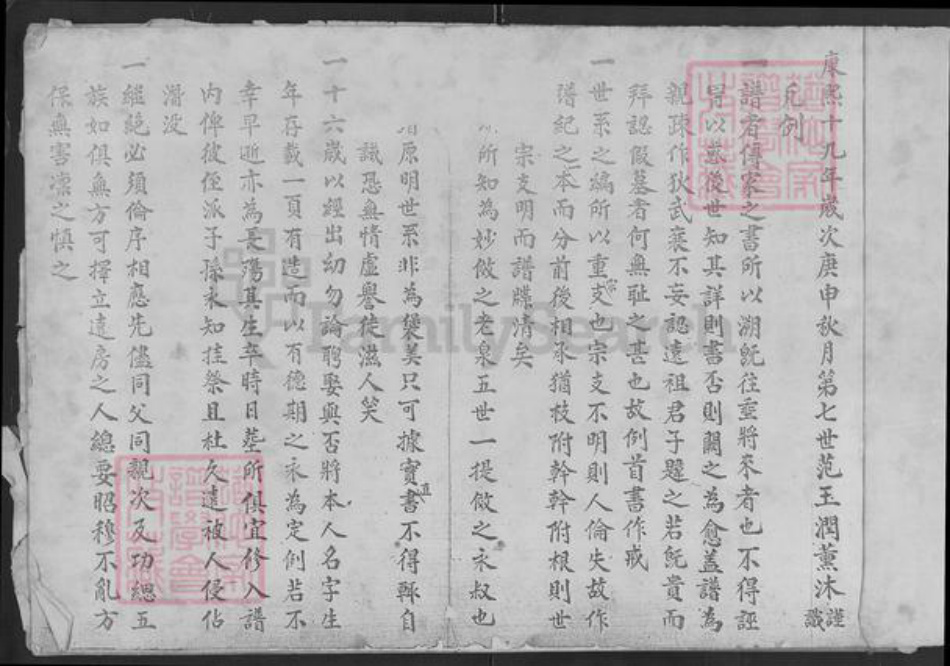 康熙十九年歲次庚申秋月第七世范王潤薰沐謹識
凡例
一譜者傳家之書所以溯既往垂將來者也不得誣
以惑後世知其詳則書否則闕之為愈蓋譜為
親疎作狄武襄不妄認遠祖君子韙之若既貴而
拜認假墓者何無耻之甚也故例首書作戒
一世系之編所以重宗支也宗支不明則人倫失故作
譜紀之本而分前後相承猶枝附幹幹附根則世
宗支明而譜牒清矣
所知為妙倣之老泉五世一提倣之永叔也
原明世系非為褒美只可據實直書不得輒自
識恐無情虛譽徒滋人笑
一十六歲以經出幼勿論聘娶與否將本人名字生
年存載一頁有造而以有德期之永為定例若不
幸早逝亦為長殤其生卒時日塟所俱宜修入譜
內俾彼侄派子孫永知挂祭且杜久遠被人侵佔
潛沒
一繼絕必須倫序相應先儘同父同親次及功緦五
族如俱無方可擇立遠房之人總要昭穆不亂方
保無害凜之慎之
FamilySearch